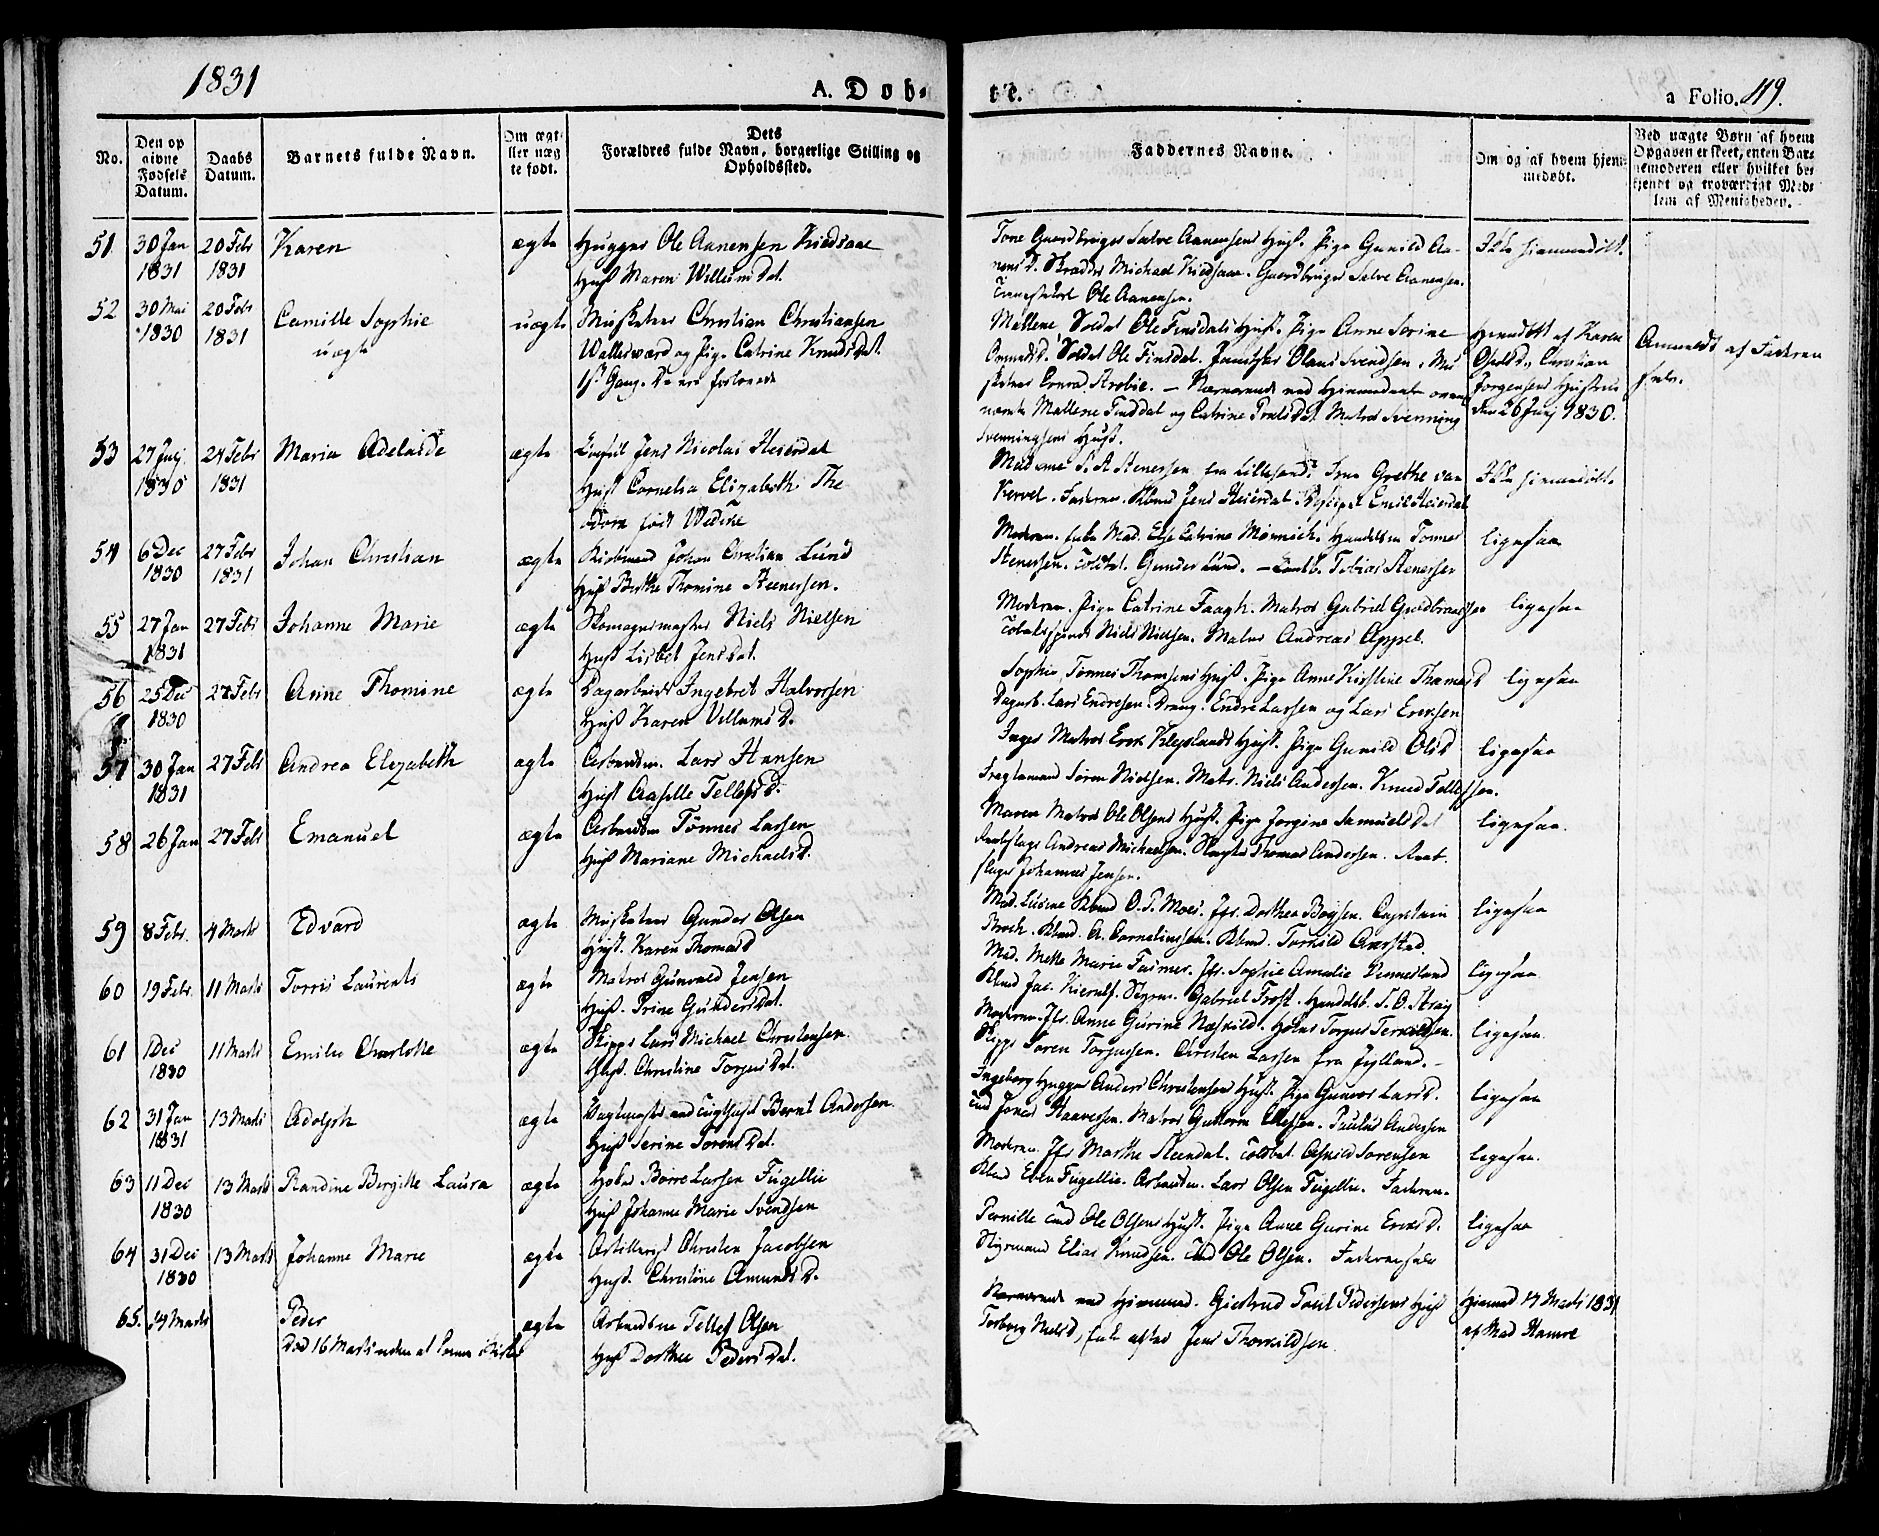 1831
A. Døb-
te.
a Folio. 119.
No.
Den op
givne
Fødsels
Datum.
Daabs
Datum.
Barnets fulde Navn.
Om ægt-
eller uæg
te født.
Dets
Forældres fulde Navn, borgerlige Stilling og
Opholdssted.
Faddernes Navne.
Om og af hvem hjem-
medøbt.
Ved uægte Børn af hvem
Opgaven er skeet, enten Bar-
nemoderen eller hvilket be-
kjendt og troværdigt Med-
lem af Menigheden.
51
30 Jan
1831
20 Febr
1831
Karen
ægte
Hugger Ole Aanensen
Hust Maren Willumsdat.
Tone Gaardbruger Salve Aanensens Hust. Pige Gunild Aa-
nens D. Skrædder Michael. Gaardbruger Salve Aanensen.
Ole Aanensen.
Ikke hiemmedøbt.
52
30 Mai
1830
20 Febr
1831
Camille Sophie
uægte
uægte
Musketeer Christian Christiansen
og Pige Catrine Knudsdat.
1ste Gang. De ere forlovede
Mallene, Soldat Ole Finsdals Hust. Pige Anne Serine
Soldat Ole Finsdal. Olaus Svendsen. Mu
sketeer. — Nærværende ved Hiemmedaaben oven
nævnte Mallene Finsdal og Catrine. Matros Svenning
Svenningsens Hust.
Hjemdøbt af Karen
Christian
Jørgensens Hustrue
den 26 Juny 1830.
Anmeldt af Faderen
selv.
53
27 July
1830
24 Febr
1831
Maria Adelaide
ægte
Consul Jens Nicolai Heierdal
Hust Cornelia Elizabeth The
odora født Wedeke
Madame S. A. Stenersen fra Lillesand. Grethe van
Kervel. Faderen. Kbmd Jens Heierdal. Emil Heierdal
Ikke hiemmedøbt.
54
6 Dec
1830
27 Febr
1831
Johan Christian
ægte
Kiøbmand Johan Christian Lund
Hust Berthe Thomine Steenersen.
Moderen. Mad. Else Catrine. Tønnes
Stenersen. Gunder Lund. — Tobias Stenersen
ligesaa
55
27 Jan
1831
27 Febr
Johanne Marie
ægte
Skomagermester Niels Nielsen
Hust Lisbet Jensdat.
Moderen. Pige Catrine Faagh. Matros Gabriel Guldbrandsen
Niels Nielsen. Matros Andreas Appel.
ligesaa
56
25 Dec
1830
27 Febr
Anne Thomine
ægte
Dagarbeider Ingebret Halvorsen
Hust Karen Villums D.
Sophie Tønnes Thomsens Hust. Pige Anne Kirstine Thomes D
Dagarb. Lars Endresen. Dreng. Endre Larsen og Lars Ericksen
ligesaa
57
30 Jan
1831
27 Febr
Andrea Elizabeth
ægte
Arbeidsm. Lars Hansen
Hust Aaselle Tellefs D.
Inger Matros Erek Klepslands Hust. Pige Gunild Ols D
Fragtemand Søren Nielsen. Matr. Niels Andersen. Knud Tellefsen.
ligesaa
58
26 Jan
27 Febr
Emanuel
ægte
Arbeidsm Tønnes Larsen
Hust Mariane Michaels D.
Maren Matros Ole Olsens Hust. Pige Jørgine Samuelsdat
Andreas Michaelsen. Thomas Andersen.
Johannes Jensen.
ligesaa.
59
8 Febr.
4 Marts
Edvard
ægte
Musketeer Gunder Olsen
Hust. Karen Thomas D
Mad. Lucine Kbmd O. P. Moes. Jfr. Dorthea Boysen. Capitain
Broch. Kbmd. A. Corneliussen. Kbmd. Torkild Averstad.
ligesaa
60
19 Febr.
11 Marts
Torris Laurents
ægte
Matros Gunvald Jensen
Hust. Trine Gundersdat.
Mad. Mette Marie Fasmer. Jfr. Sophie Amalie Vennesland
Kbmd Jac. Kierulf. Styrm. Gabriel Frost. Handelsb. S. O. Straÿ
ligesaa
61
1 Dec
1830
11 Marts
Emilie Charlotte
ægte
Skipper Lars Michael Christensen.
Hust. Christine Torjusdat.
Moderen. Jfr. Anne Gurine Næskild. Torjus Terkildsen.
Skipper Søren Torjussen. Christen Larsen fra Jylland. -
ligesaa.
62
31 Jan
1831
13 Marts
Adolph
ægte
Vagtmester ved Tugthuset Bernt Andersen.
Hust Serine Sørensdat.
Ingeborg Hugger Anders Christensens Hust. Pige Gunvor Lars D.
Jonas Haavorsen. Matros Guttorm Ellefsen. Paulus Andersen
ligesaa
63
11 Dec
1830
13 Marts
Randine Bergitte Laura
ægte
Børre Larsen Fugellie
Hust Johanne Marie Svendsen
Moderen. Jfr Marthe Steendal. Toldbet. Askild Sørensen
Kbmd Even Fugellie. Arbeidsm. Lars Olsen Fugellie. Faderen.
ligesaa.
64
31 Dec
1830
13 Marts
Johanne Marie
ægte
Artillerist Christen Jacobsen
Hust. Christine Amunds D.
Pernille Ole Olsens Hust. Pige Anne Gurine Ericks D.
Styrmand Elias Knudsen. Ole Olsen. Faderen selv
ligesaa
65.
14 Marts
Peder
Død 16 Marts uden at komme i Kirke
ægte
Arbeidsm Tellef Olsen
Hust Dorthea Pedersdat.
Nærværende ved Hjemmed. Giertrud Poul Pedersens Hust
Torborg Niels D, Jens Thorkildsen
Hjemmed 14 Marts 1831
af Mad Hamre